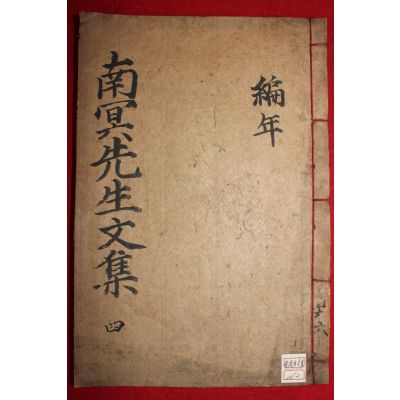 編年
南冥先生文集
四
共六